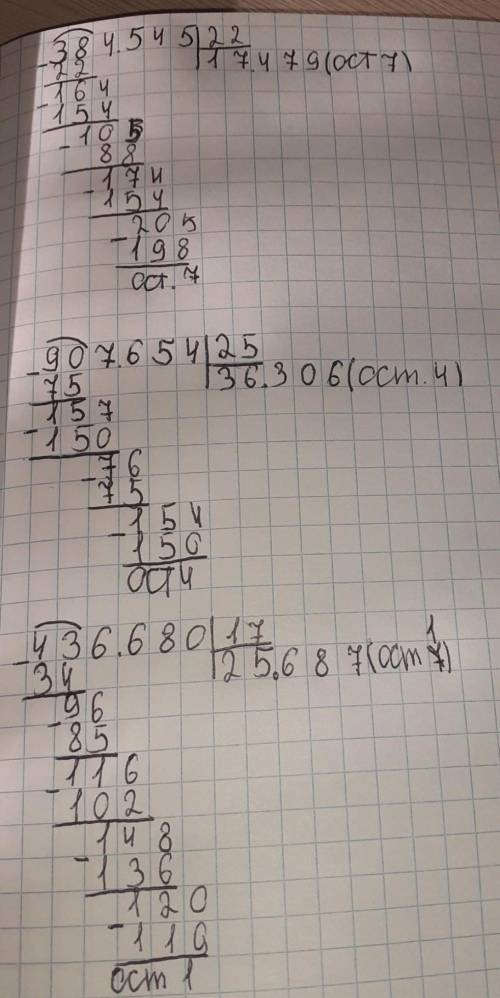 38 4.545|22
-22 17.479(ост 7)
164
-154
105
-88
174
-154
205
-198
ост.7
-90 7.654|25
75 36.306(ост.4)
157
-150
76
-75
154
-150
ост 4
-436.680|17
34 25.687(ост 1)
-96
85
116
-102
148
-136
120
-119
ост 1